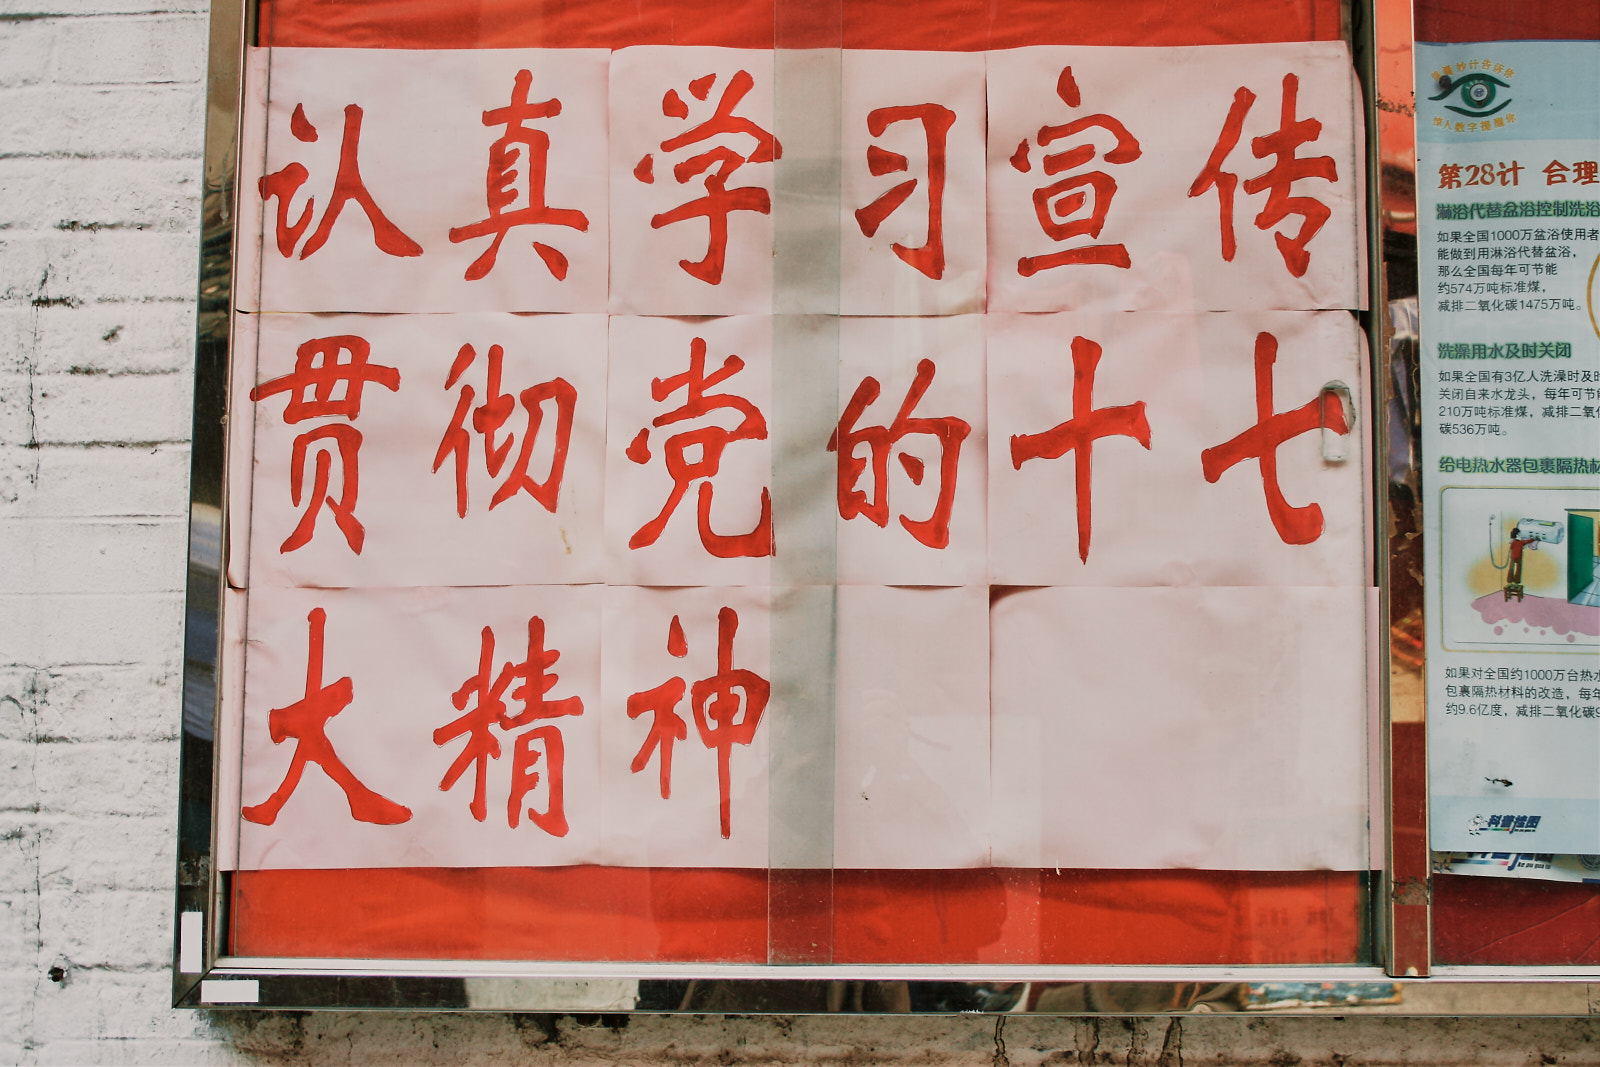 认真学习宣传
贯彻党的十七
大精神
第28计 合理
淋浴代替盆浴控制洗浴
如果全国1000万盆浴使用者
能做到用淋浴代替盆浴，
那么全国每年可节能
约574万吨标准煤，
减排二氧化碳1475万吨。
洗澡用水及时关闭
如果全国有3亿人洗澡时及时
关闭自来水龙头，每年可节能
210万吨标准煤，减排二氧化
碳536万吨。
给电热水器包裹隔热材
如果对全国约1000万台热水
包裹隔热材料的改造，每年
约9.6亿度，减排二氧化碳9
科普挂图